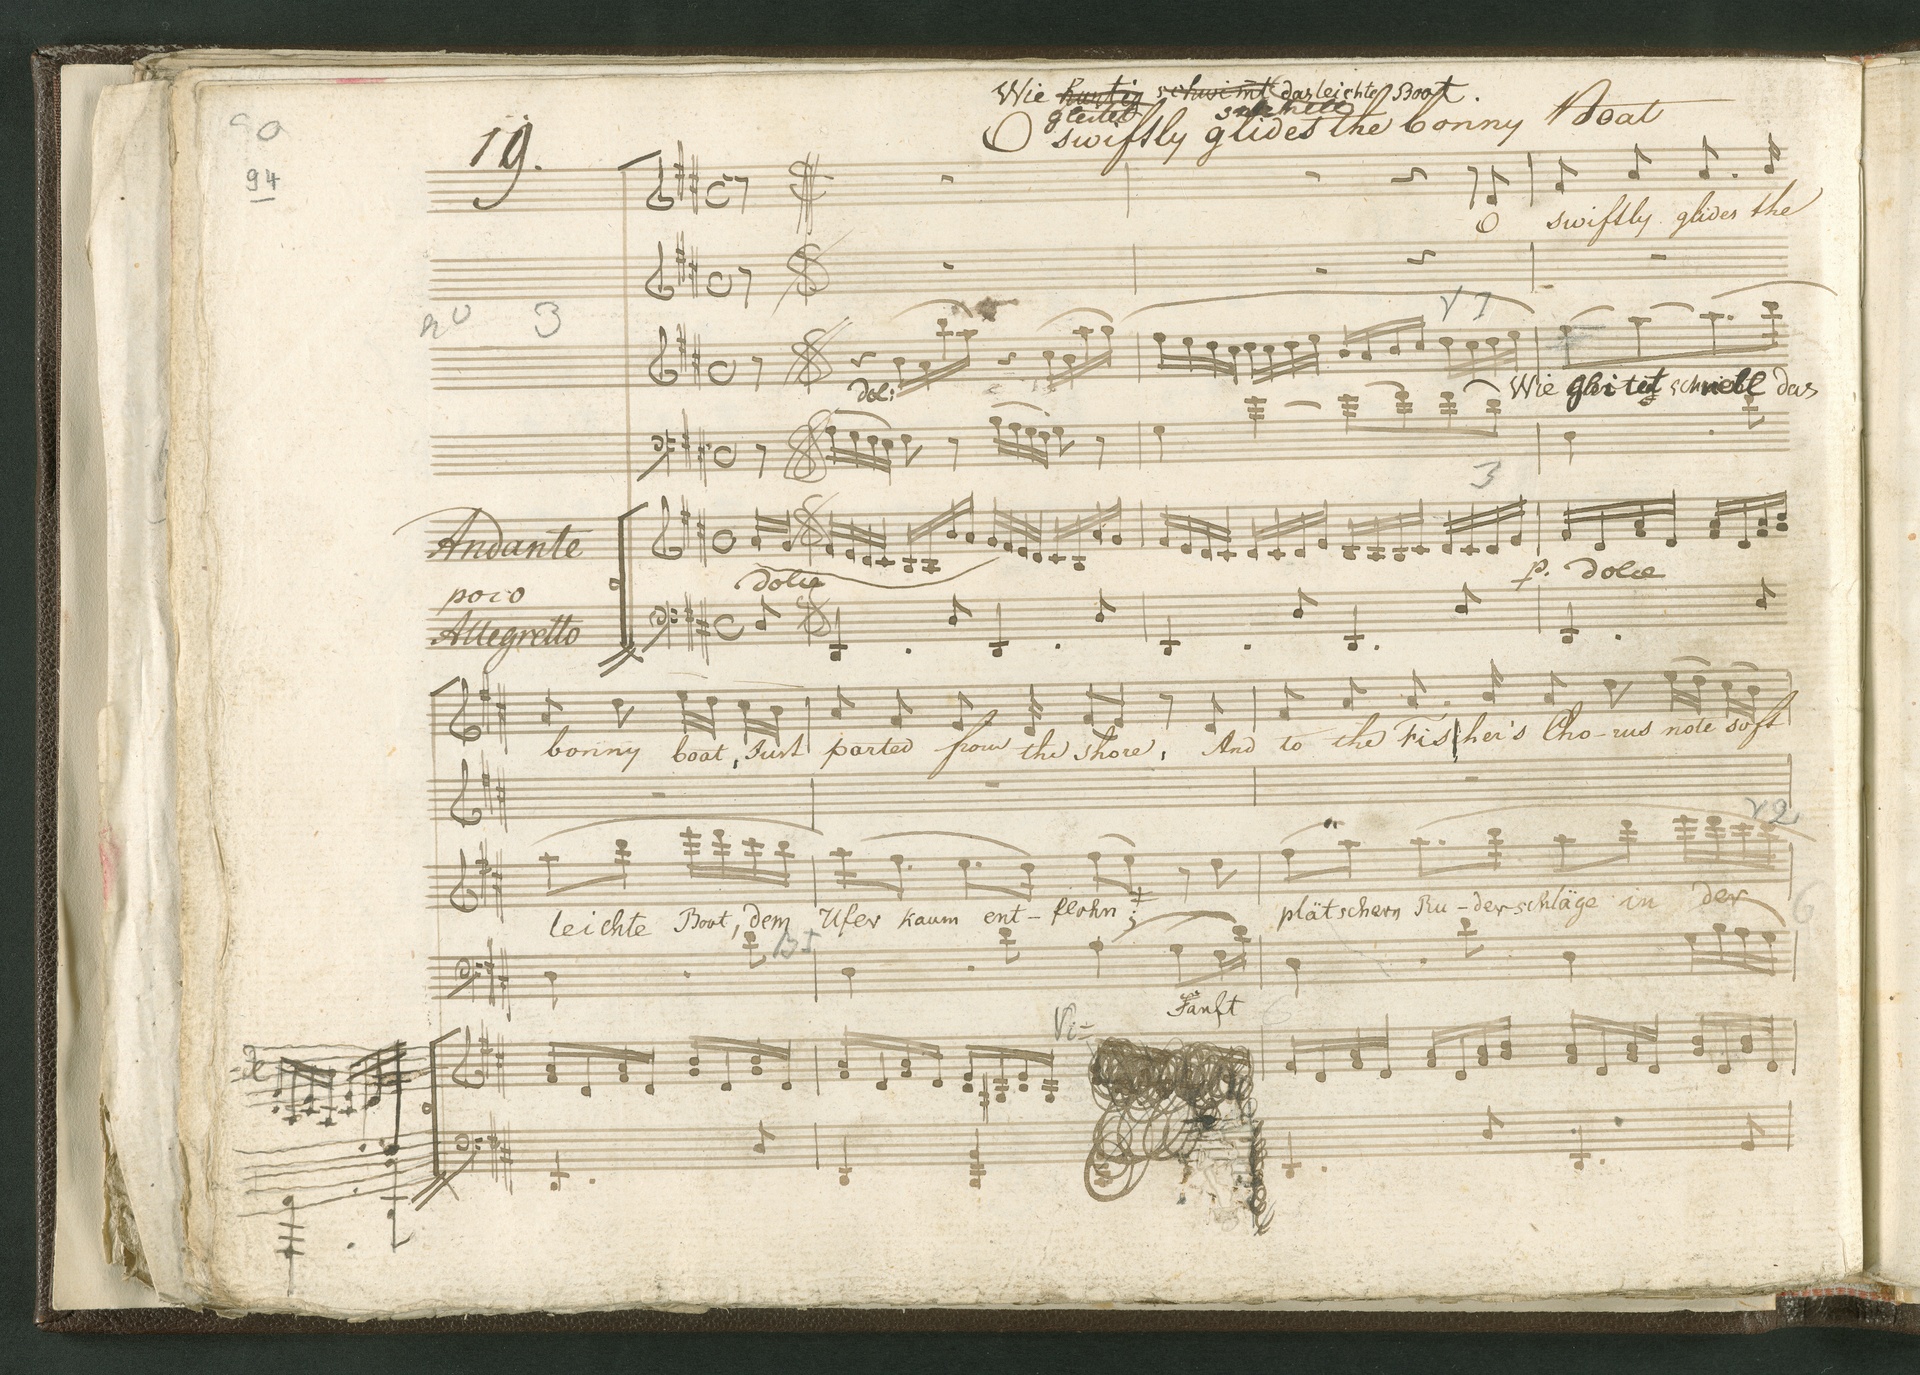 Wie hurtig schwimt das leichte Boot.
gleitet schnell
19.
O swiftly glides the bonny Boat
94
O swiftly glides the
no 3
V 1
dol:
Wie gleitet schnell das
3
Andante
poco
Allegretto
dolce
p. dolce
bonny boat, Just parted from the shore, And to the Fisher's Cho-rus note soft
V 2
leichte Boot, dem Ufer kaum ent-flohn; plätschern Ru-derschläge in der
6
Sanft
Vi=